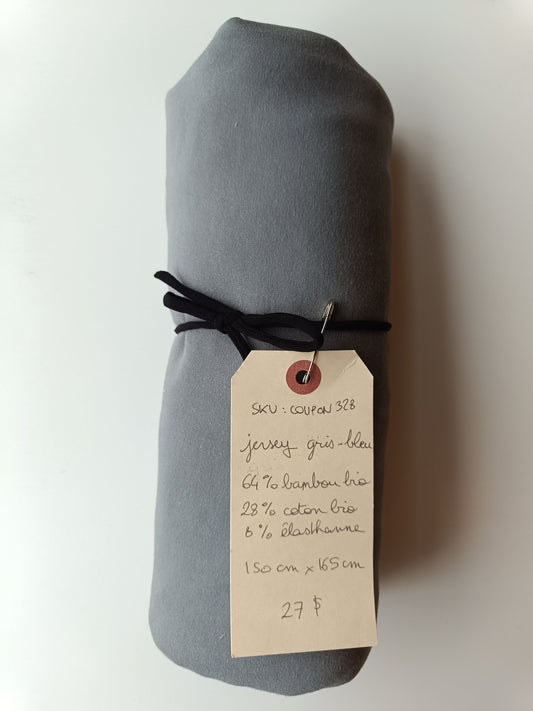 SKU : COUPON 328
jersey gris-bleu
64% bambou bio
28% coton bio
8% élasthanne
150 cm x 165 cm
27 $